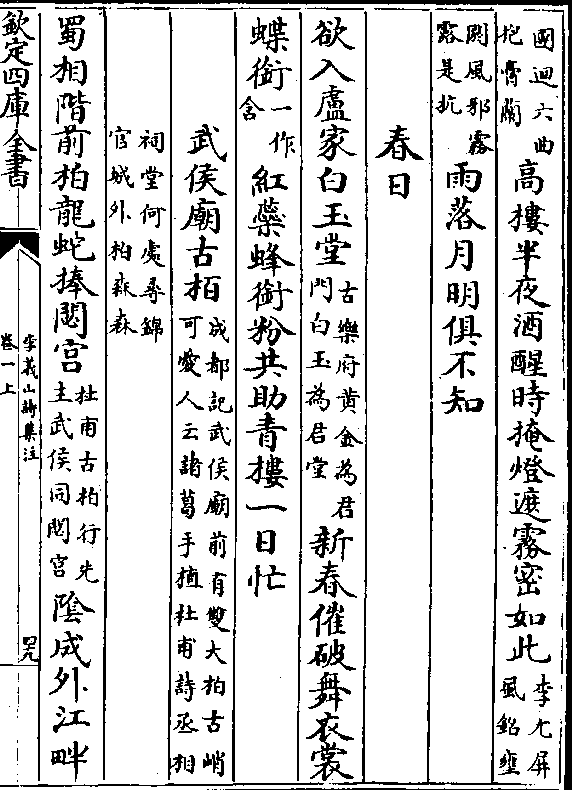 國迴六曲
抱膏蘭
高樓半夜酒醒時掩燈遮霧密如此
李尤屏
風銘壅
閼風邪霧
露是抗
雨落月明俱不知
春日
欲入盧家白玉堂
古樂府黄金為君
門白玉為君堂
新春催破舞衣裳
蝶銜
一作
含
紅蘂蜂銜粉共助青樓一日忙
武侯廟古栢
成都記武侯廟前有雙大柏古峭
可愛人云諸葛手植杜甫詩丞相
祠堂何處尋錦
官城外柏森森
蜀相階前柏龍蛇捧閟宫
杜甫古柏行先
主武侯同閟宫
陰成外江畔
欽定四庫全書
李義山詩集注
卷一上
四九